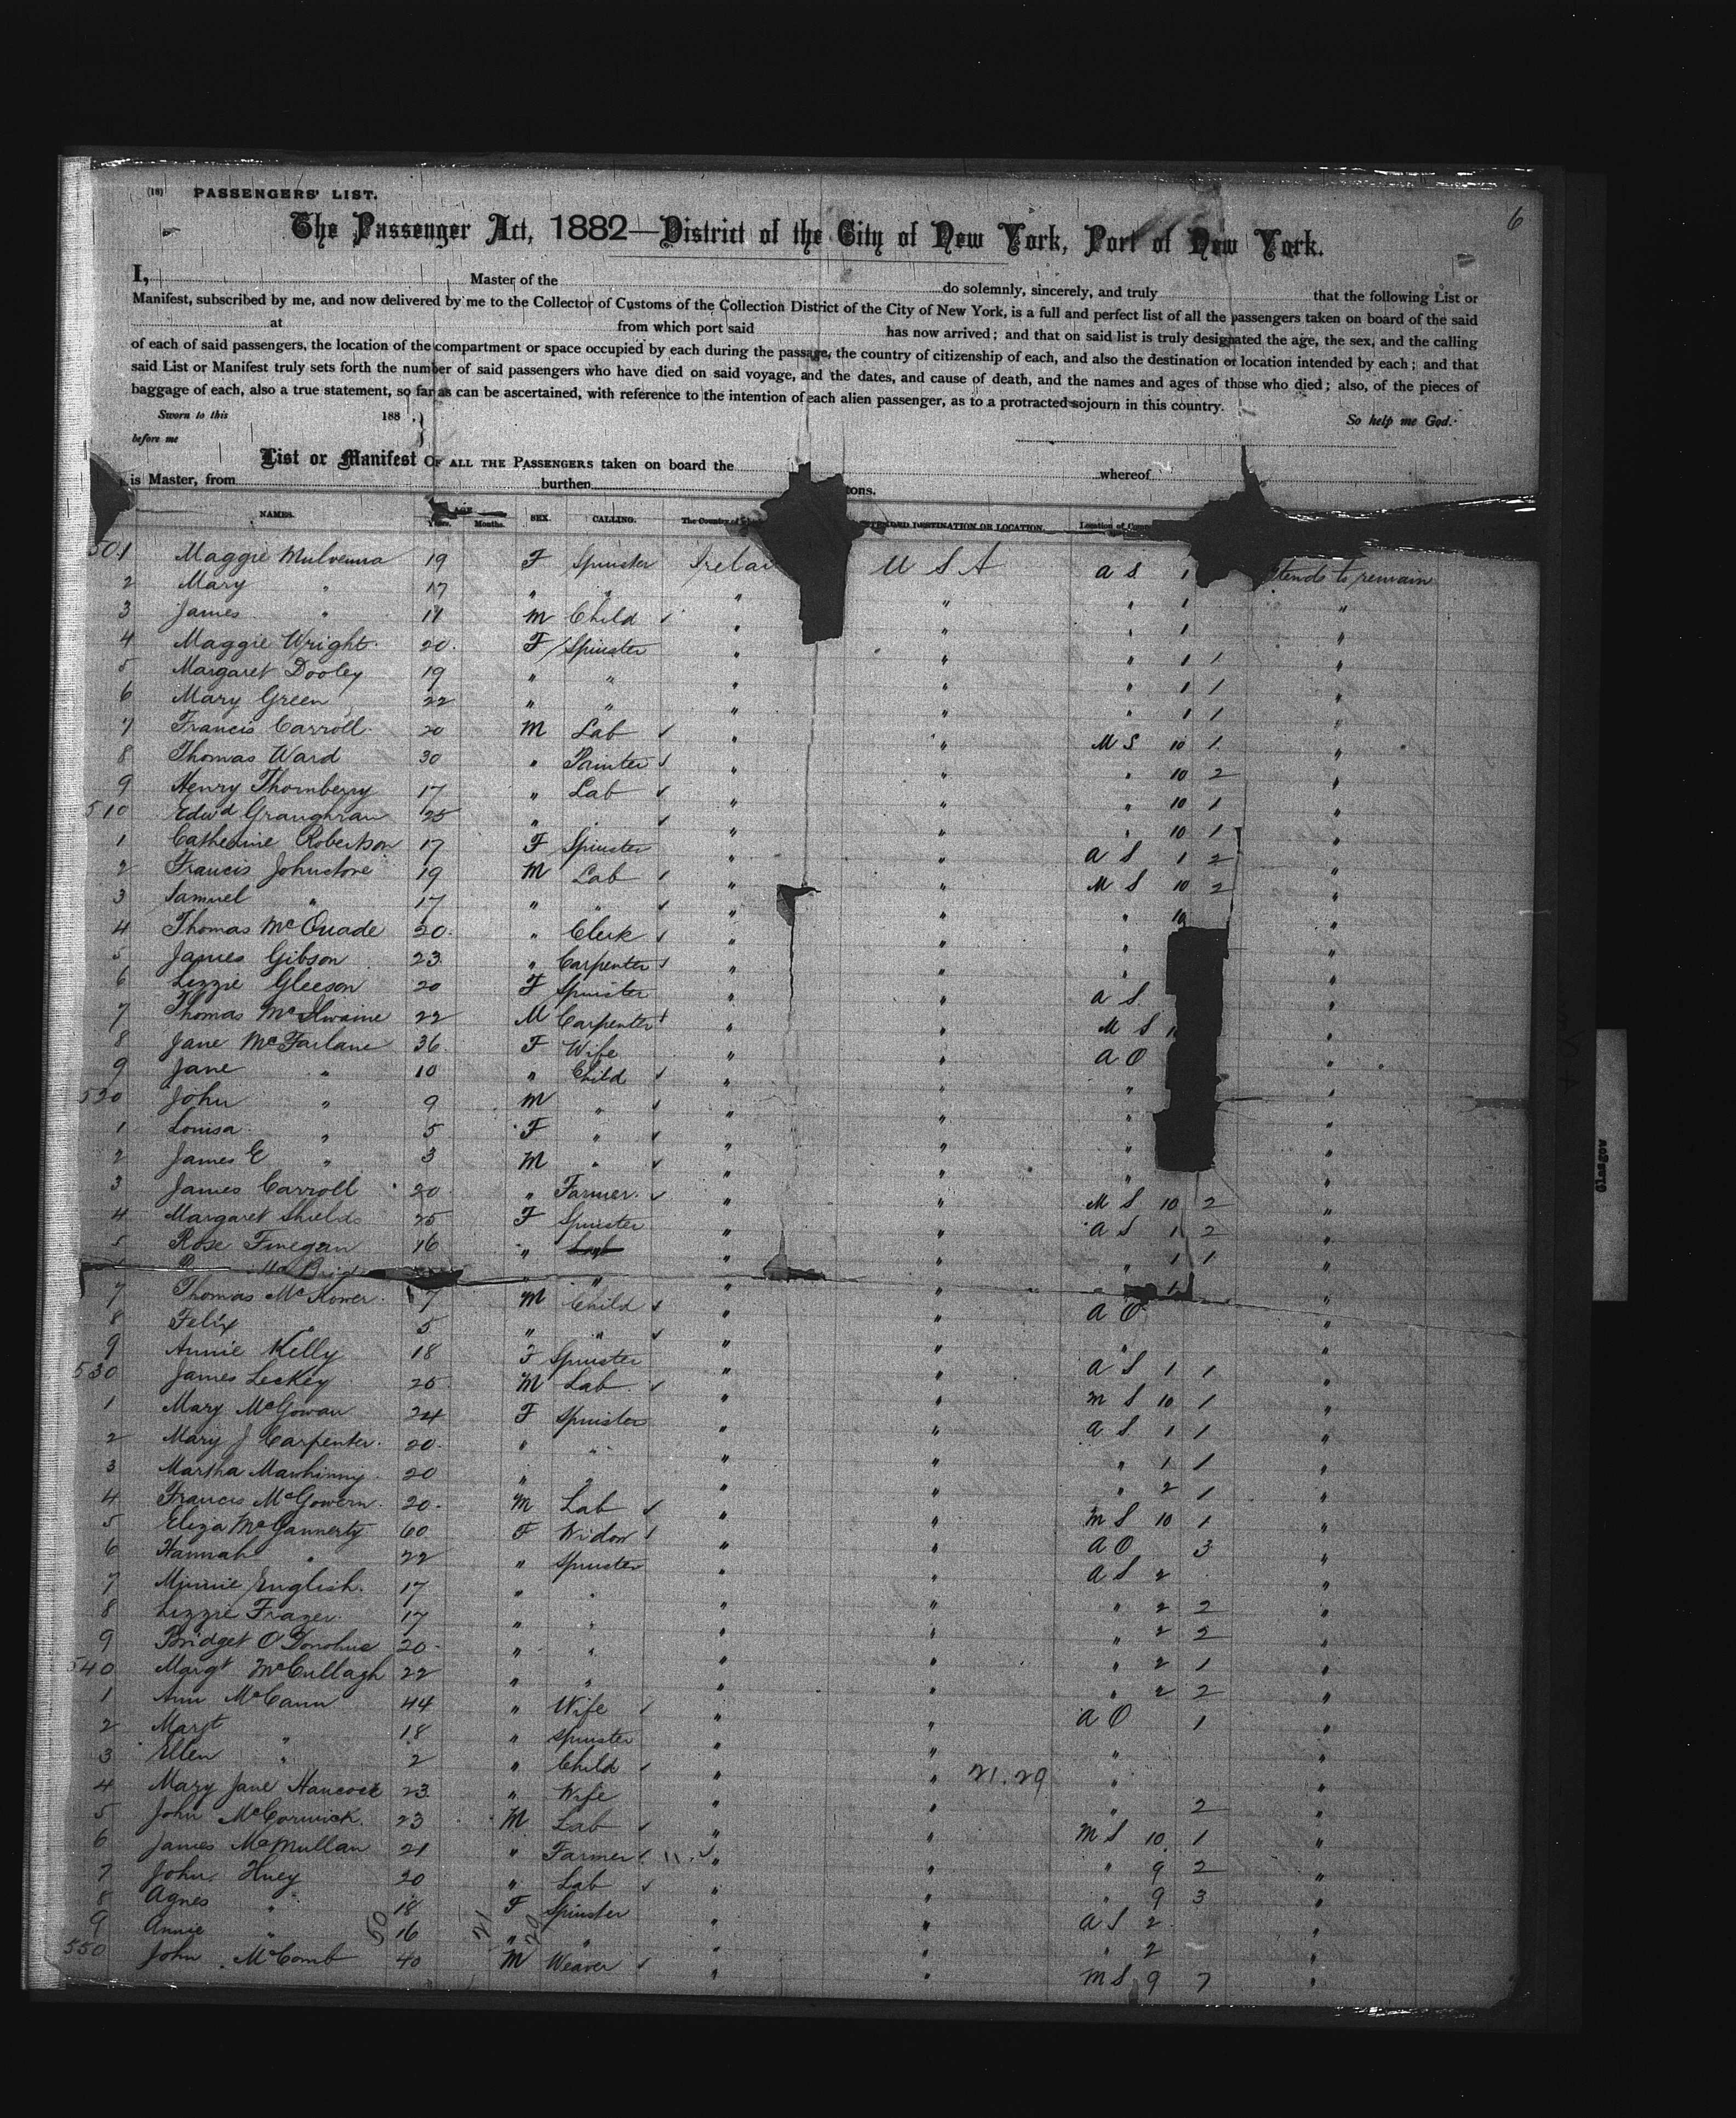 (18) PASSENGERS' LIST.
6
The Passenger Act, 1882—District of the City of New York, Port of New York.
I, Master of the do solemnly, sincerely, and truly that the following List or
Manifest, subscribed by me, and now delivered by me to the Collector of Customs of the Collection District of the City of New York, is a full and perfect list of all the passengers taken on board of the said
at from which port said has now arrived; and that on said list is truly designated the age, the sex, and the calling
of each of said passengers, the location of the compartment or space occupied by each during the passage, the country of citizenship of each, and also the destination or location intended by each; and that
said List or Manifest truly sets forth the number of said passengers who have died on said voyage, and the dates, and cause of death, and the names and ages of those who died; also, of the pieces of
baggage of each, also a true statement, so far as can be ascertained, with reference to the intention of each alien passenger, as to a protracted sojourn in this country.
Sworn to this 188 So help me God.
before me
List or Manifest OF ALL THE PASSENGERS taken on board the whereof
is Master, from burthen tons.
NAMES. AGE Years. Months. SEX. CALLING. The Country of DESTINATION OR LOCATION. Location of
501 Maggie Mulvenna 19 F Spinster U S A a S 1 to remain
2 Mary " 17 " " " " " 1 "
3 James " 11 M Child " " " 1 "
4 Maggie Wright 20 F Spinster " " " 1 1 "
5 Margaret Dooley 19 " " " " " 1 1 "
6 Mary Green 22 " " " " " 1 1 "
7 Francis Carroll 20 M Lab " " M S 10 1 "
8 Thomas Ward 30 " Painter " " " 10 2 "
9 Henry Thornberry 17 " Lab " " " 10 1 "
510 Edwd 25 " " " " " 10 1 "
1 Catherine Robertson 17 F Spinster " " a S 1 2 "
2 Francis Johnstone 19 M Lab " " M S 10 2 "
3 Samuel " 17 " " " " " 10 "
4 Thomas McQuade 20 " Clerk " " " "
5 James Gibson 23 " Carpenter " " " "
6 Lizzie Gleeson 20 F Spinster " " a S "
7 Thomas McIlwaine 22 M Carpenter " " M S "
8 Jane McFarlane 36 F Wife " " a O "
9 Jane " 10 " Child " " "
520 John " 9 M " " " " "
1 Louisa " 5 F " " " " "
2 James E " 3 M " " " " "
3 James Carroll 20 " Farmer " " M S 10 2 "
4 Margaret Shields 25 F Spinster " " a S 1 2 "
5 Rose Finegan 16 " " " " 1 1 "
" " " " "
7 Thomas 7 M Child " " a O "
8 Felix " 5 " " " " " "
9 Annie Kelly 18 F Spinster " " a S 1 1 "
530 James Leckey 25 M Lab " " M S 10 1 "
1 Mary McGowan 24 F Spinster " " a S 1 1 "
2 Mary J Carpenter 20 " " " " " 1 1 "
3 Martha Mawhinny 20 " " " " " 2 1 "
4 Francis McGowern 20 M Lab " " M S 10 1 "
5 Eliza McGannerty 60 F Widow " " a O 3 "
6 Hannah " 22 " Spinster " " a S 2 "
7 Minnie English 17 " " " " " 2 2 "
8 Lizzie Frazer 17 " " " " " 2 2 "
9 Bridget O'Donohue 20 " " " " " 2 1 "
540 Margt McCullagh 22 " " " " " 2 2 "
1 Ann McCann 44 " Wife " " a O 1 "
2 Margt " 18 " Spinster " " " "
3 Ellen " 2 " Child " " 21.29 " "
4 Mary Jane Hancock 23 " Wife " " " 2 "
5 John McCormick 23 M Lab " " M S 10 1 "
6 James McMullan 21 " Farmer " " " 9 2 "
7 John Huey 20 " Lab " " " 9 3 "
8 Agnes " 18 F Spinster " " a S 2 "
9 Annie " 16 " " " " " 2 "
550 John McComb 40 M Weaver " " M S 9 7 "
50 21 29
Glasgow